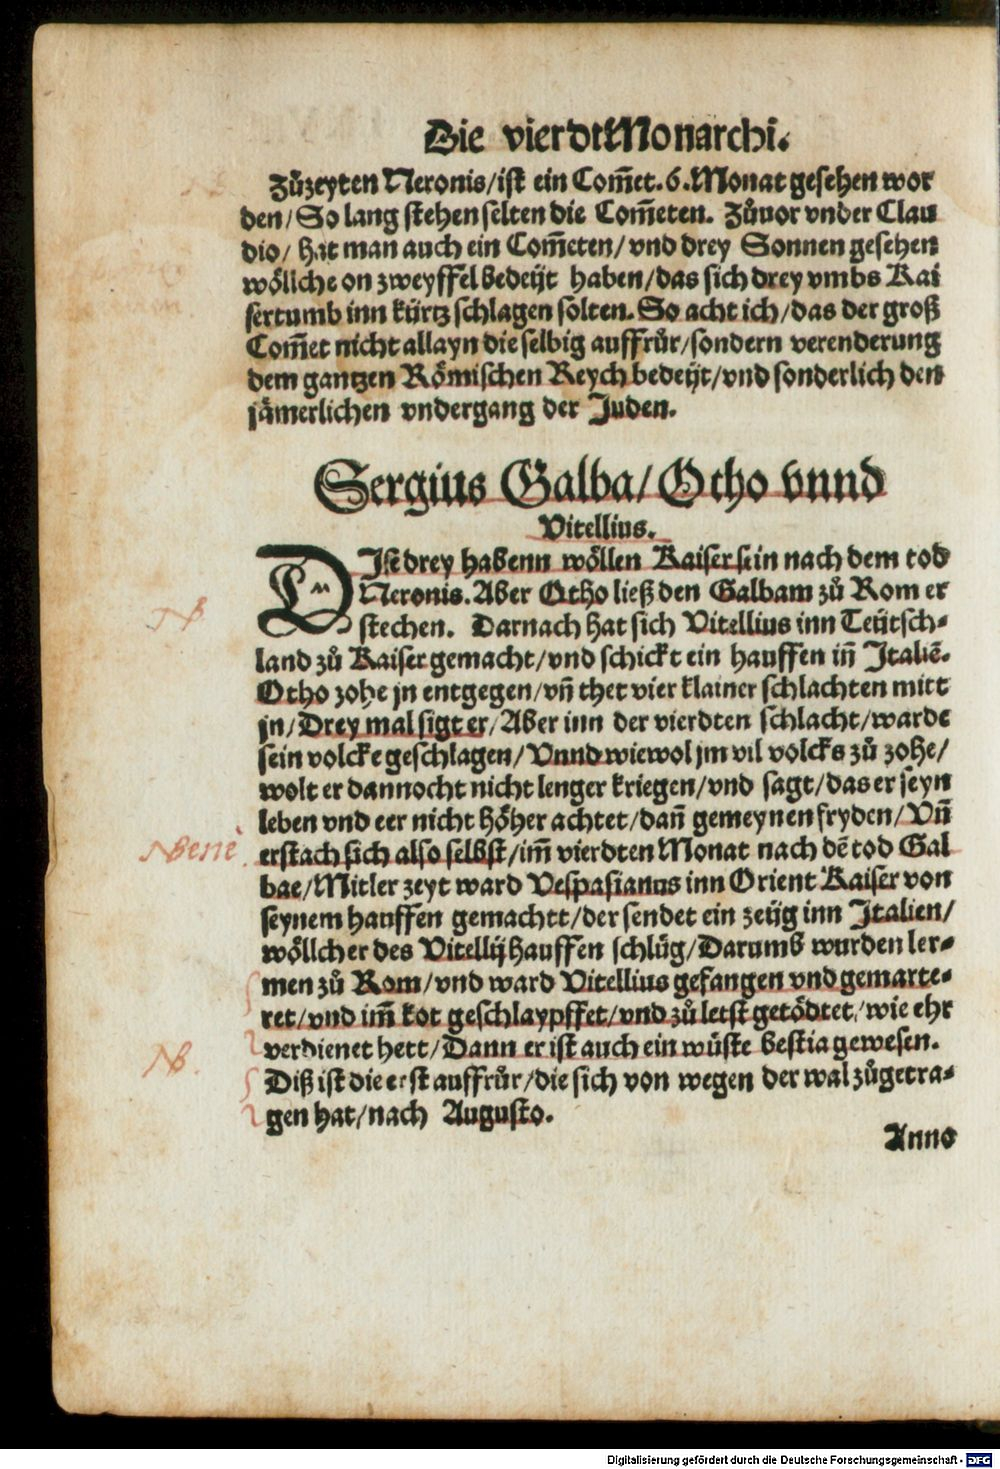 Die vierdt Monarchi.
Zůzeyten Neronis/ist ein Com̃et.6.Monat gesehen wor
den/So lang stehen selten die Com̃eten. Zůuor vnder Clau
dio/ hat man auch ein Com̃eten/vnd drey Sonnen gesehen
wölliche on zweyffel bedeüt haben/das sich drey vmbs Kai
sertumb inn kürtz schlagen solten. So acht ich/das der groß
Com̃et nicht allayn die selbig auffrůr/sondern verenderung
dem gantzen Römischen Reych bedeüt/vnd sonderlich den
jämerlichen vndergang der Juden.
Sergius Galba/Otho vnnd
Vitellius.
DIse drey habenn wöllen Kaiser sein nach dem tod
Neronis. Aber Otho ließ den Galbam zů Rom er
NB
stechen. Darnach hat sich Vitellius inn Teütsch-
land zů Kaiser gemacht/vnd schickt ein hauffen in̄ Italiē.
Otho zohe jn entgegen/vn̄ thet vier klainer schlachten mitt
jn/Drey mal sigt er/Aber inn der vierdten schlacht/warde
sein volcke geschlagen/Vnnd wiewol jm vil volcks zů zohe/
wolt er dannocht nicht lenger kriegen/vnd sagt/das er seyn
leben vnd eer nicht höher achtet/dan̄ gemeynen fryden/Vn̄
NBene
erstach sich also selbst/im̄ vierdten Monat nach dē tod Gal
bae/Mitler zeyt ward Vespasianus inn Orient Kaiser von
seynem hauffen gemachtt/der sendet ein zeüg inn Italien/
wöllcher des Vitellij hauffen schlůg/Darumb wurden ler-
men zů Rom/vnd ward Vitellius gefangen vnd gemarte-
ret/vnd im̄ kot geschlaypffet/vnd zů letst getödtet/wie ehr
NB.
verdienet hett/Dann er ist auch ein wüste bestia gewesen.
Diß ist die erst auffrůr/die sich von wegen der wal zůgetra-
gen hat/nach Augusto.
Anno
Digitalisierung gefördert durch die Deutsche Forschungsgemeinschaft - DFG